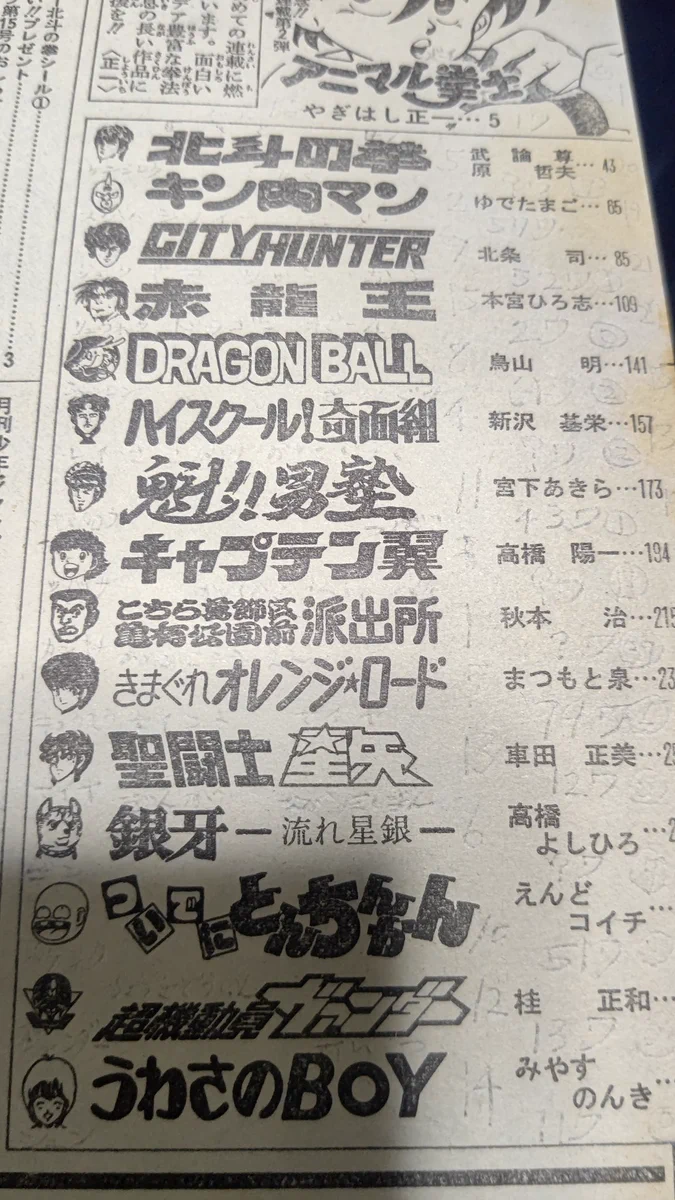 北斗の拳シール①
プレゼント
3
めての連載に燃
います。面白い
デア豊富な拳法
息の長い作品に
援を!!
〈正一〉
アニマル拳士
やぎはし正一…5
北斗の拳 武論尊 原哲夫…43
キン肉マン ゆでたまご…65
CITY HUNTER 北条 司…85
赤龍王 本宮ひろ志…109
DRAGON BALL 鳥山 明…141
ハイスクール!奇面組 新沢 基栄…157
魁!!男塾 宮下あきら…173
キャプテン翼 高橋 陽一…194
こちら葛飾区亀有公園前派出所 秋本 治…215
きまぐれオレンジ★ロード まつもと泉…23
聖闘士星矢 車田 正美…25
銀牙―流れ星銀― 高橋よしひろ…2
ついでにとんちんかん えんどコイチ…
超機動員ヴァンダー 桂 正和…
うわさのBOY みやすのんき…